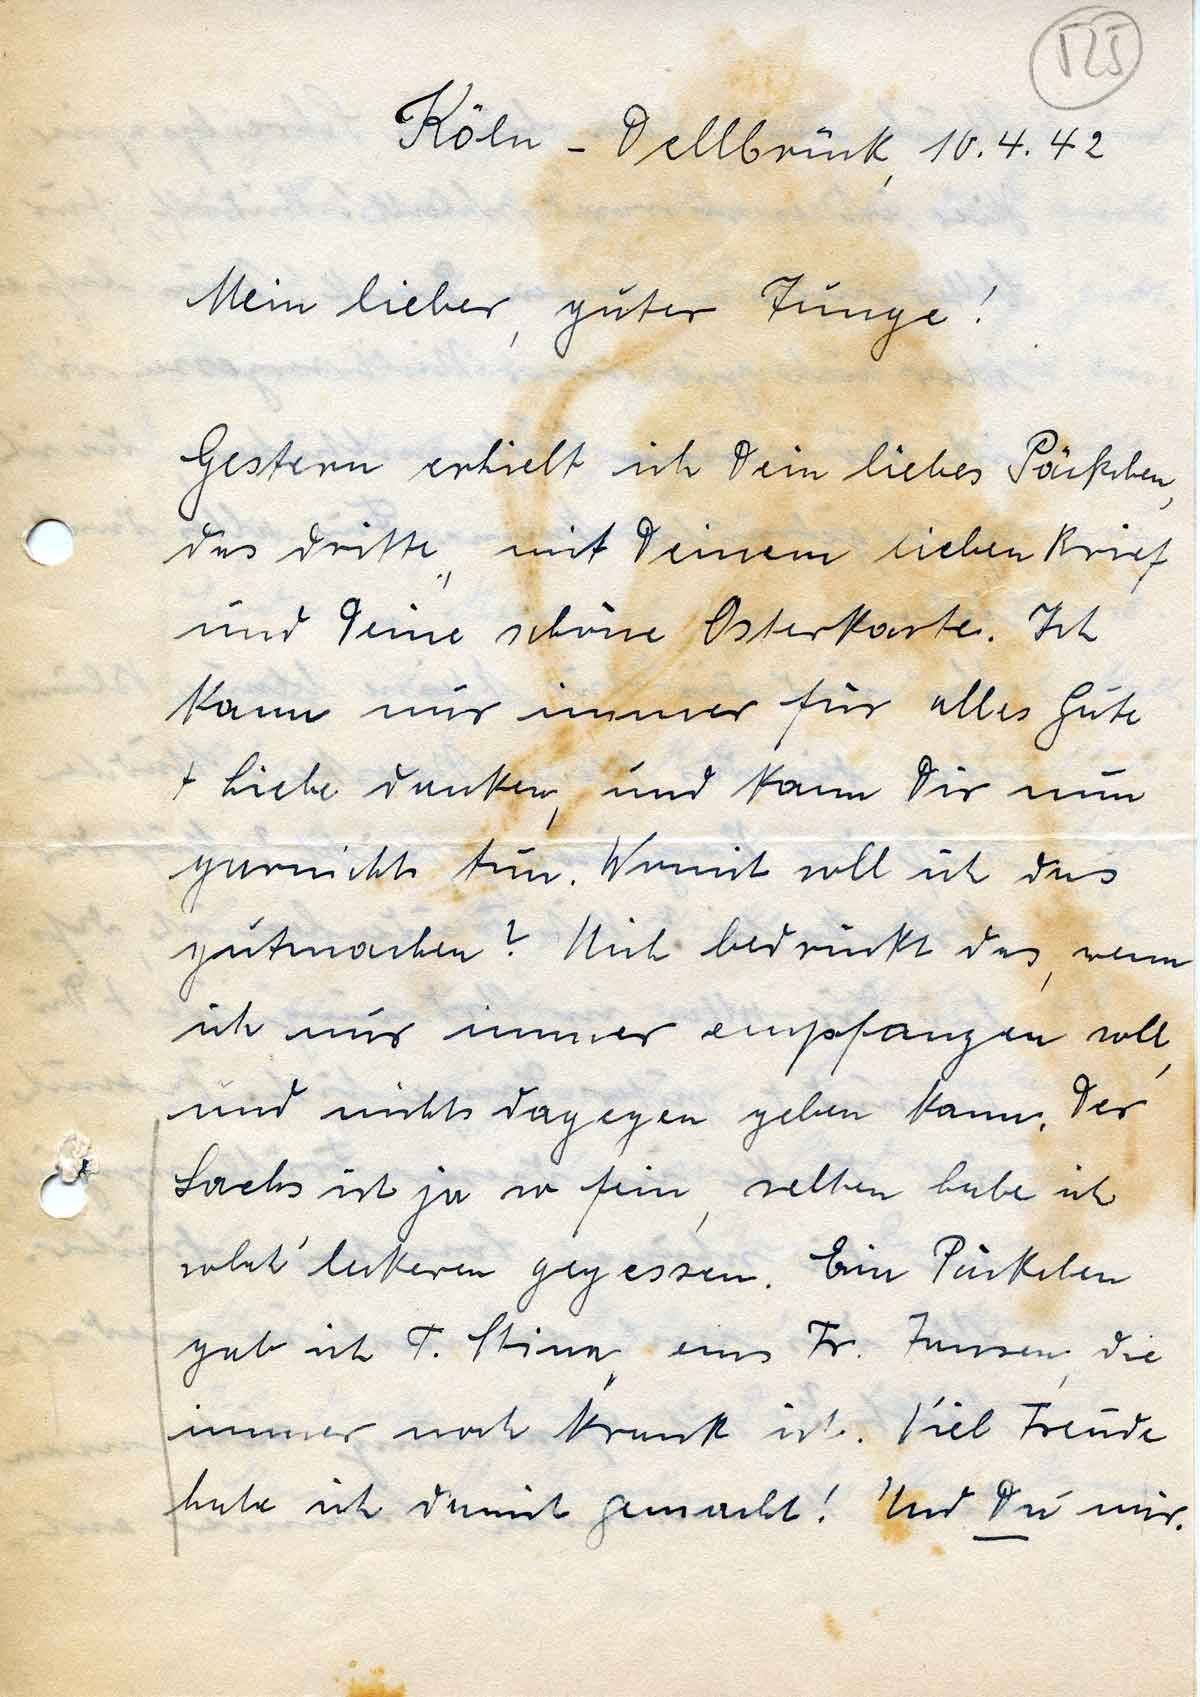 525
Köln - Dellbrück, 10.4.42
Mein lieber, guter Junge!
Gestern erhielt ich Dein liebes Päckchen,
das dritte, mit Deinem lieben Brief
und Deine schöne Osterkarte. Ich
kann nur immer für alles Gute
+ Liebe danken, und kann Dir nun
garnichts tun. Womit soll ich das
gutmachen? Mich bedrückt das, wenn
ich nur immer empfangen soll,
und nichts dagegen geben kann. Der
Lachs ist ja so fein, selten habe ich
solch' leckeren gegessen. Ein Päckchen
gab ich T. Stina, eins Fr. Jansen, die
immer noch krank ist. Viel Freude
habe ich damit gemacht! Und Du mir.